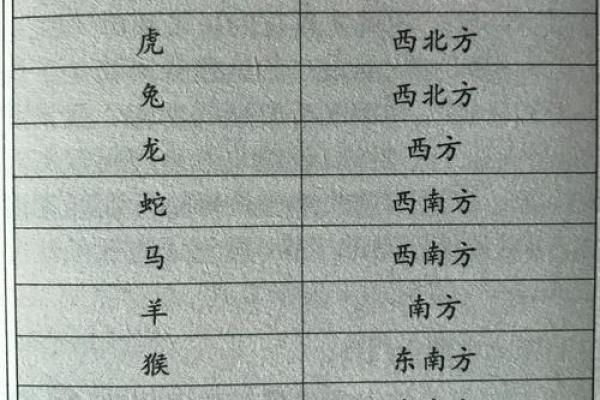 虎 西北方
兔 西北方
龙 西方
蛇 西南方
马 西南方
羊 南方
猴 东南方